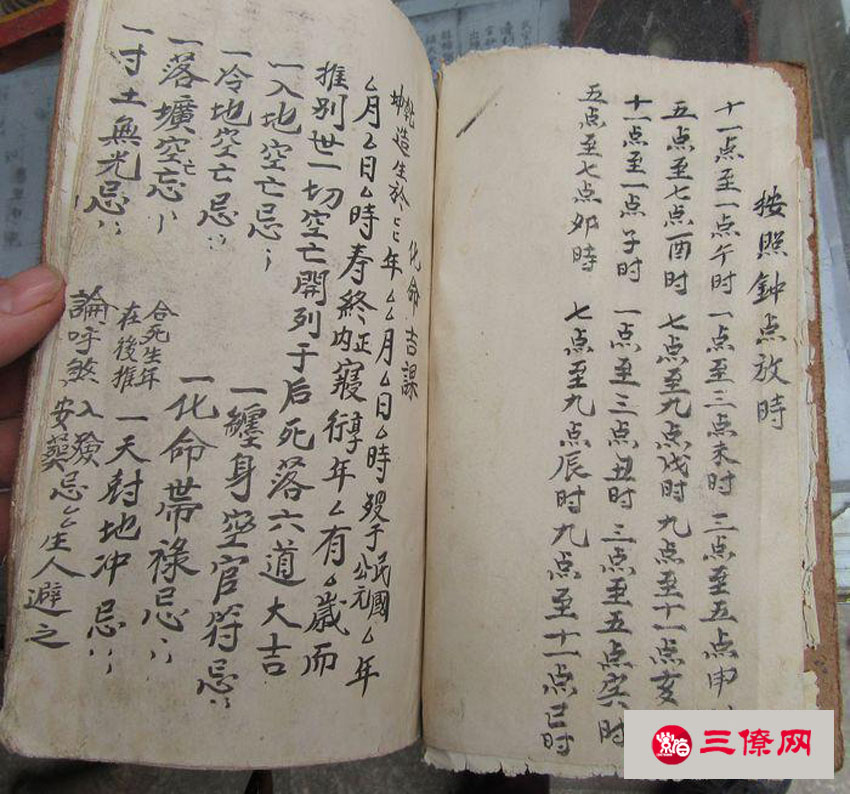 按照鈡点放時
十一点至一点午时 一点至三点未时 三点至五点申
五点至七点酉时 七点至九点戌时 九点至十一点亥
十一点至一点子时 一点至三点丑时 三点至五点寅时
五点至七点卯時 七点至九点辰时 九点至十一点巳时
化命吉課
乾坤造生於 年厶月厶日厶時 殁于民國公元厶年
厶月厶日厶時寿終正内寢 享年厶有厶歲而
推别世一切空亡開列于后死落六道大吉
一入地空亡忌 一纏身空官符忌
一冷地空亡忌 一化命世帶祿忌
一落壙空亡忘 一天封地冲忌
一寸土無光忌 合死生年在後推
論呼煞入殮安葬忌厶生人避之
三僚网